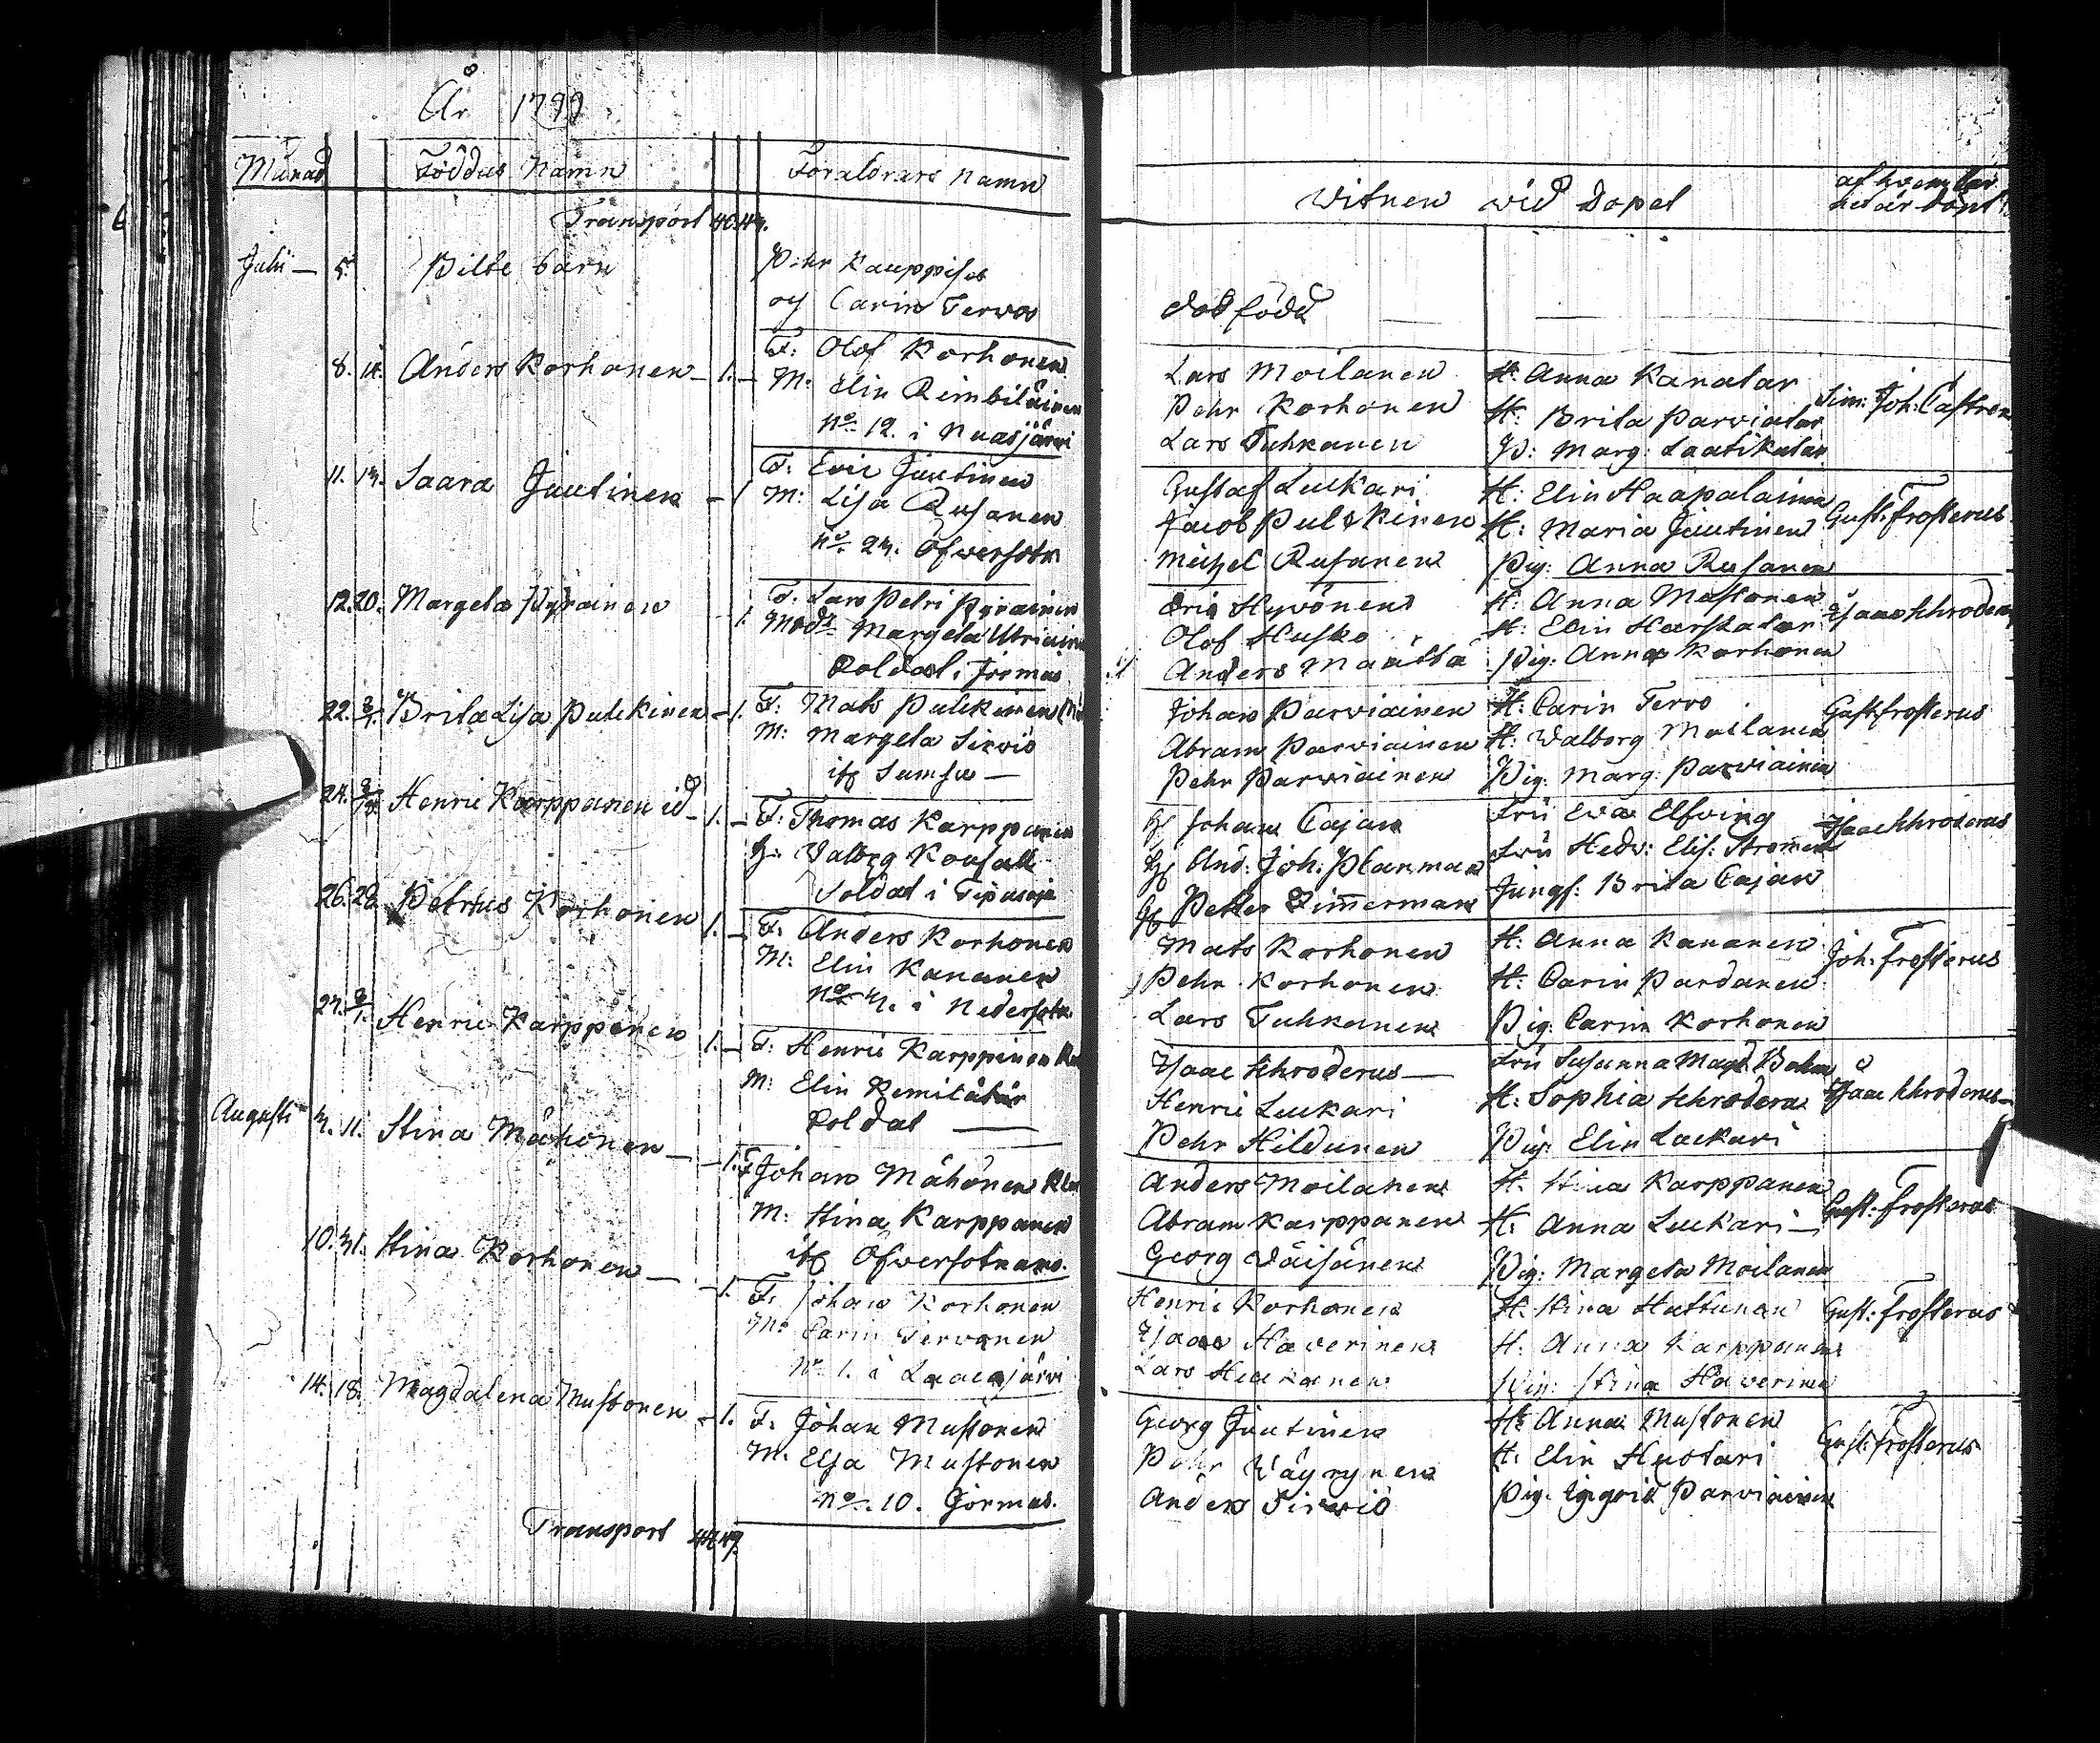 År 1799
Månad Föddas Namn Föräldrars namn
Transport
Julii — 5. Pilte barn
Pehr Kauppinen
och Carin Tervo
8. 14. Anders Korhonen — 1. —
F: Olof Korhonen
M: Elin Rimbiläinen
No 12. i Nuasjärvi
11. 14. Saara Juutinen — 1
F: Eric Juutinen
M: Lisa Rusanen
No 24. Öfwersotk
12. 20. Margeta Pyrainen 1.
F. Lars Petri Pyrainen
Modr Margeta Utriainen
Soldat i Jormas
22. 2/1. Brita Lisa Pulckinen — 1.
F: Mats Pulckinen
M: Margeta Sirviö
ifr Sumsa —
24. Henric Karppanen id — 1. —
F: Thomas Karppanen
H: Valborg
Soldat i Tipasoja
26. 28. Petrus Korhonen 1. —
F. Anders Korhonen
M: Elin Kananen
No 4. i Nedersotk.
Henric Karppanen 1. —
F: Henric Karppinen
M: Elin Kemilätär
Soldat —
Augusti 4. 11. Stina Mähönen — 1.
F Johan Mähönen
M: Stina Karppanen
ifr Öfwersotkamo.
10. 41. Stina Korhonen — 1.
F. Johan Korhonen
M: Carin Tervonen
No 1. i
14. 18. Magdalena Mustonen — 1.
F. Johan Mustonen
M. Elsa Mustonen
No. 10. Jormas.
Transport
Witnen wid Dopet
af hwem barnet är döpt
död född
Lars Moilanen H: Anna Kanatar Sim: Joh: Castren
Pehr Korhonen H: Brita Parviatar
Lars Tuhkanen P: Marg: Laatikatar
Gustaf Luckari H: Elin Haapalainen Gust: Frosterus
Jacob Pulckinen H: Maria Juutinen
Michel Rusanen Pig: Anna Rusanen
Eric Hyvönen H: Anna Mustonen Isaac Schroderus
Olof Husko H: Elin
Anders Määttä Pig: Anna Korhonen
Johan Parviainen H: Carin Tervo Gust Frosterus
Abram Parviainen H: Walborg Moilanen
Pehr Parviainen Pig: Marg: Parviainen
Hr Johan Cajan Fru Ewa Elfving Isaac Schroderus
Hr And: Joh: Planman Fru Hedv: Elis: Stromer
Hr Petter Zimmerman Jungf: Brita Cajan
Mats Korhonen H: Anna Kananen Joh: Frosterus
Pehr Korhonen H: Carin Pardanen
Lars Tuhkanen Pig: Carin Korhonen
Isaac Schroderus — Fru Susanna Magd. Bohm Isaac Schroderus
Henric Luckari H: Sophia Schrodera
Pehr Hildunen Pig: Elin Luckari
Anders Moilanen H: Stina Karppanen Gust: Frosterus
Abram Karppanen H: Anna Luckari —
Georg Väisänen Pig: Margeta Moilanen
Henric Korhonen H: Stina Hattunen Gust: Frosterus
Isaac Haverinen H: Anna Karppanen
Lars Pig: Stina Haverinen
Georg Juutinen H: Anna Mustonen Gust: Frosterus
Pehr Väyrynen H: Elin Huotari
Anders Sirviö Pig: Ingrid Parviainen